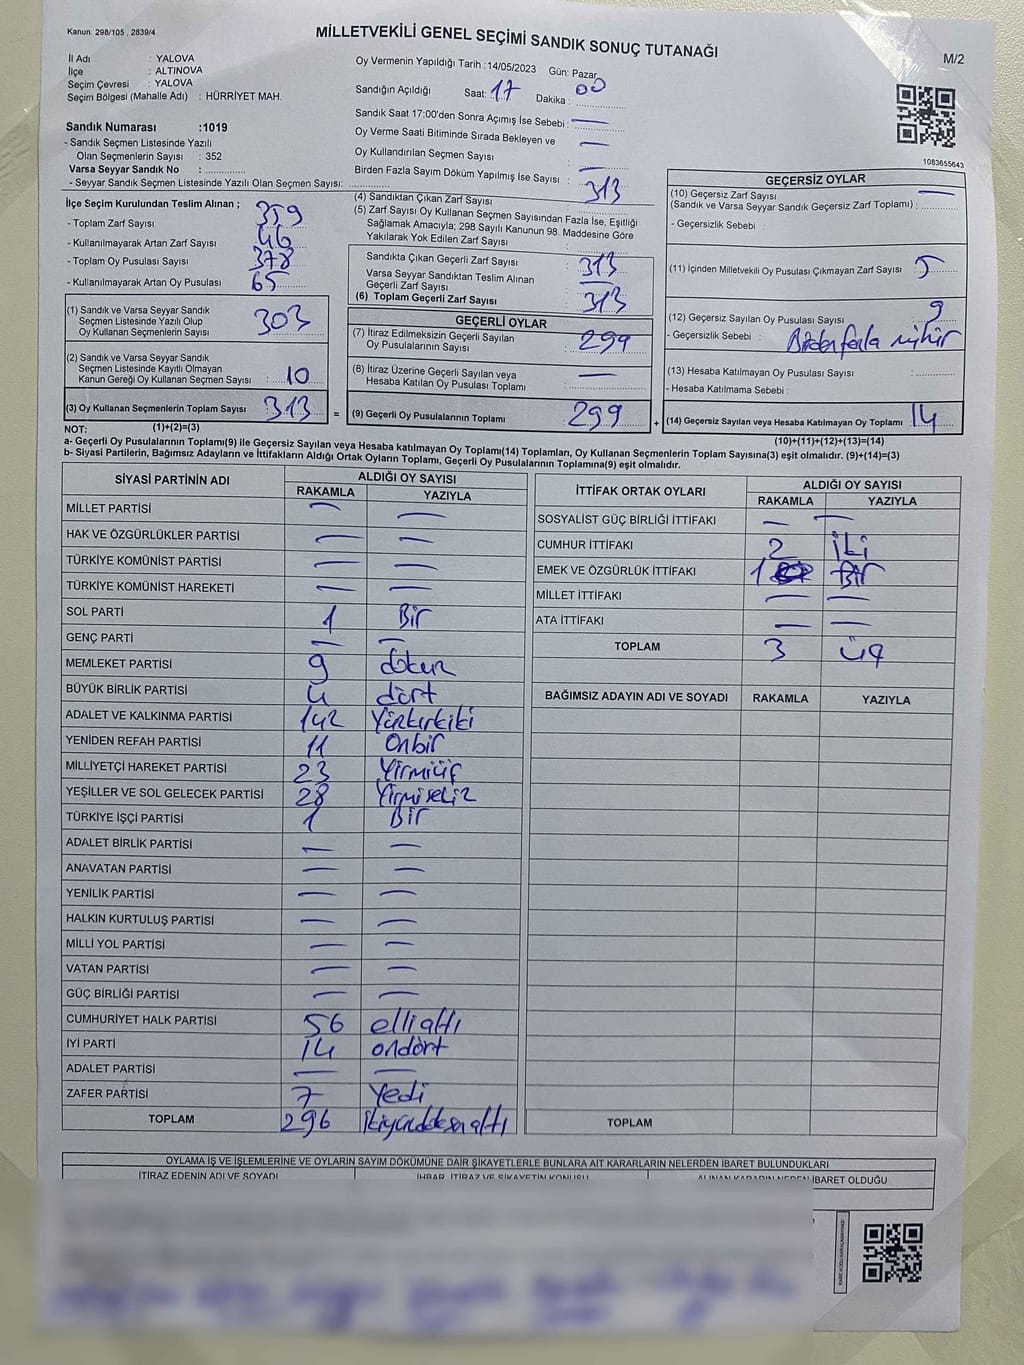 Kanun. 298/105 , 2839/4
MİLLETVEKİLİ GENEL SEÇİMİ SANDIK SONUÇ TUTANAĞI
M/2
İl Adı : YALOVA
İlçe : ALTINOVA
Seçim Çevresi : YALOVA
Seçim Bölgesi (Mahalle Adı) : HÜRRİYET MAH.
Sandık Numarası :1019
- Sandık Seçmen Listesinde Yazılı
Olan Seçmenlerin Sayısı : 352
Varsa Seyyar Sandık No :
- Seyyar Sandık Seçmen Listesinde Yazılı Olan Seçmen Sayısı:
Oy Vermenin Yapıldığı Tarih :14/05/2023 Gün: Pazar
Sandığın Açıldığı Saat: 17 Dakika : 00
Sandık Saat 17:00'den Sonra Açımış İse Sebebi : —
Oy Verme Saati Bitiminde Sırada Bekleyen ve
Oy Kullandırılan Seçmen Sayısı : —
Birden Fazla Sayım Döküm Yapılmış İse Sayısı : —
1083655643
İlçe Seçim Kurulundan Teslim Alınan ;
- Toplam Zarf Sayısı 359
- Kullanılmayarak Artan Zarf Sayısı 46
- Toplam Oy Pusulası Sayısı 378
- Kullanılmayarak Artan Oy Pusulası 65
(1) Sandık ve Varsa Seyyar Sandık
Seçmen Listesinde Yazılı Olup
Oy Kullanan Seçmenlerin Sayısı 303
(2) Sandık ve Varsa Seyyar Sandık
Seçmen Listesinde Kayıtlı Olmayan
Kanun Gereği Oy Kullanan Seçmen Sayısı : 10
(3) Oy Kullanan Seçmenlerin Toplam Sayısı 313 =
(1)+(2)=(3)
(4) Sandıktan Çıkan Zarf Sayısı 313
(5) Zarf Sayısı Oy Kullanan Seçmen Sayısından Fazla İse, Eşitliği
Sağlamak Amacıyla; 298 Sayılı Kanunun 98. Maddesine Göre
Yakılarak Yok Edilen Zarf Sayısı :
Sandıkta Çıkan Geçerli Zarf Sayısı : 313
Varsa Seyyar Sandıktan Teslim Alınan
Geçerli Zarf Sayısı : —
(6) Toplam Geçerli Zarf Sayısı : 313
GEÇERLİ OYLAR
(7) İtiraz Edilmeksizin Geçerli Sayılan
Oy Pusulalarının Sayısı : 299
(8) İtiraz Üzerine Geçerli Sayılan veya
Hesaba Katılan Oy Pusulaları Toplamı : —
(9) Geçerli Oy Pusulalarının Toplamı : 299 +
GEÇERSİZ OYLAR
(10) Geçersiz Zarf Sayısı —
(Sandık ve Varsa Seyyar Sandık Geçersiz Zarf Toplamı) :
- Geçersizlik Sebebi :
(11) İçinden Milletvekili Oy Pusulası Çıkmayan Zarf Sayısı : 5
(12) Geçersiz Sayılan Oy Pusulası Sayısı : 9
- Geçersizlik Sebebi : Birden fazla mühür
(13) Hesaba Katılmayan Oy Pusulası Sayısı :
- Hesaba Katılmama Sebebi :
(14) Geçersiz Sayılan veya Hesaba Katılmayan Oy Toplamı : 14
(10)+(11)+(12)+(13)=(14)
NOT:
a- Geçerli Oy Pusulalarının Toplamı(9) ile Geçersiz Sayılan veya Hesaba katılmayan Oy Toplamı(14) Toplamları, Oy Kullanan Seçmenlerin Toplam Sayısına(3) eşit olmalıdır. (9)+(14)=(3)
b- Siyasi Partilerin, Bağımsız Adayların ve İttifakların Aldığı Ortak Oyların Toplamı, Geçerli Oy Pusulalarının Toplamına(9) eşit olmalıdır.
SİYASİ PARTİNİN ADI ALDIĞI OY SAYISI
RAKAMLA YAZIYLA
MİLLET PARTİSİ — —
HAK VE ÖZGÜRLÜKLER PARTİSİ — —
TÜRKİYE KOMÜNİST PARTİSİ — —
TÜRKİYE KOMÜNİST HAREKETİ — —
SOL PARTİ 1 Bir
GENÇ PARTİ — —
MEMLEKET PARTİSİ 9 dokuz
BÜYÜK BİRLİK PARTİSİ 4 dört
ADALET VE KALKINMA PARTİSİ 142 Yüzkırkiki
YENİDEN REFAH PARTİSİ 11 Onbir
MİLLİYETÇİ HAREKET PARTİSİ 23 Yirmiüç
YEŞİLLER VE SOL GELECEK PARTİSİ 28 Yirmisekiz
TÜRKİYE İŞÇİ PARTİSİ 1 Bir
ADALET BİRLİK PARTİSİ — —
ANAVATAN PARTİSİ — —
YENİLİK PARTİSİ — —
HALKIN KURTULUŞ PARTİSİ — —
MİLLİ YOL PARTİSİ — —
VATAN PARTİSİ — —
GÜÇ BİRLİĞİ PARTİSİ — —
CUMHURİYET HALK PARTİSİ 56 elli altı
İYİ PARTİ 14 ondört
ADALET PARTİSİ — —
ZAFER PARTİSİ 7 Yedi
TOPLAM 296 İkiyüzdoksanaltı
İTTİFAK ORTAK OYLARI ALDIĞI OY SAYISI
RAKAMLA YAZIYLA
SOSYALİST GÜÇ BİRLİĞİ İTTİFAKI — —
CUMHUR İTTİFAKI 2 İki
EMEK VE ÖZGÜRLÜK İTTİFAKI 1 Bir
MİLLET İTTİFAKI — —
ATA İTTİFAKI — —
TOPLAM 3 üç
BAĞIMSIZ ADAYIN ADI VE SOYADI RAKAMLA YAZIYLA
TOPLAM
OYLAMA İŞ VE İŞLEMLERİNE VE OYLARIN SAYIM DÖKÜMÜNE DAİR ŞİKAYETLERLE BUNLARA AİT KARARLARIN NELERDEN İBARET BULUNDUKLARI
İTİRAZ EDENİN ADI VE SOYADI İHBAR, İTİRAZ VE ŞİKAYETİN KONUSU ALINAN KARARIN NEDEN İBARET OLDUĞU